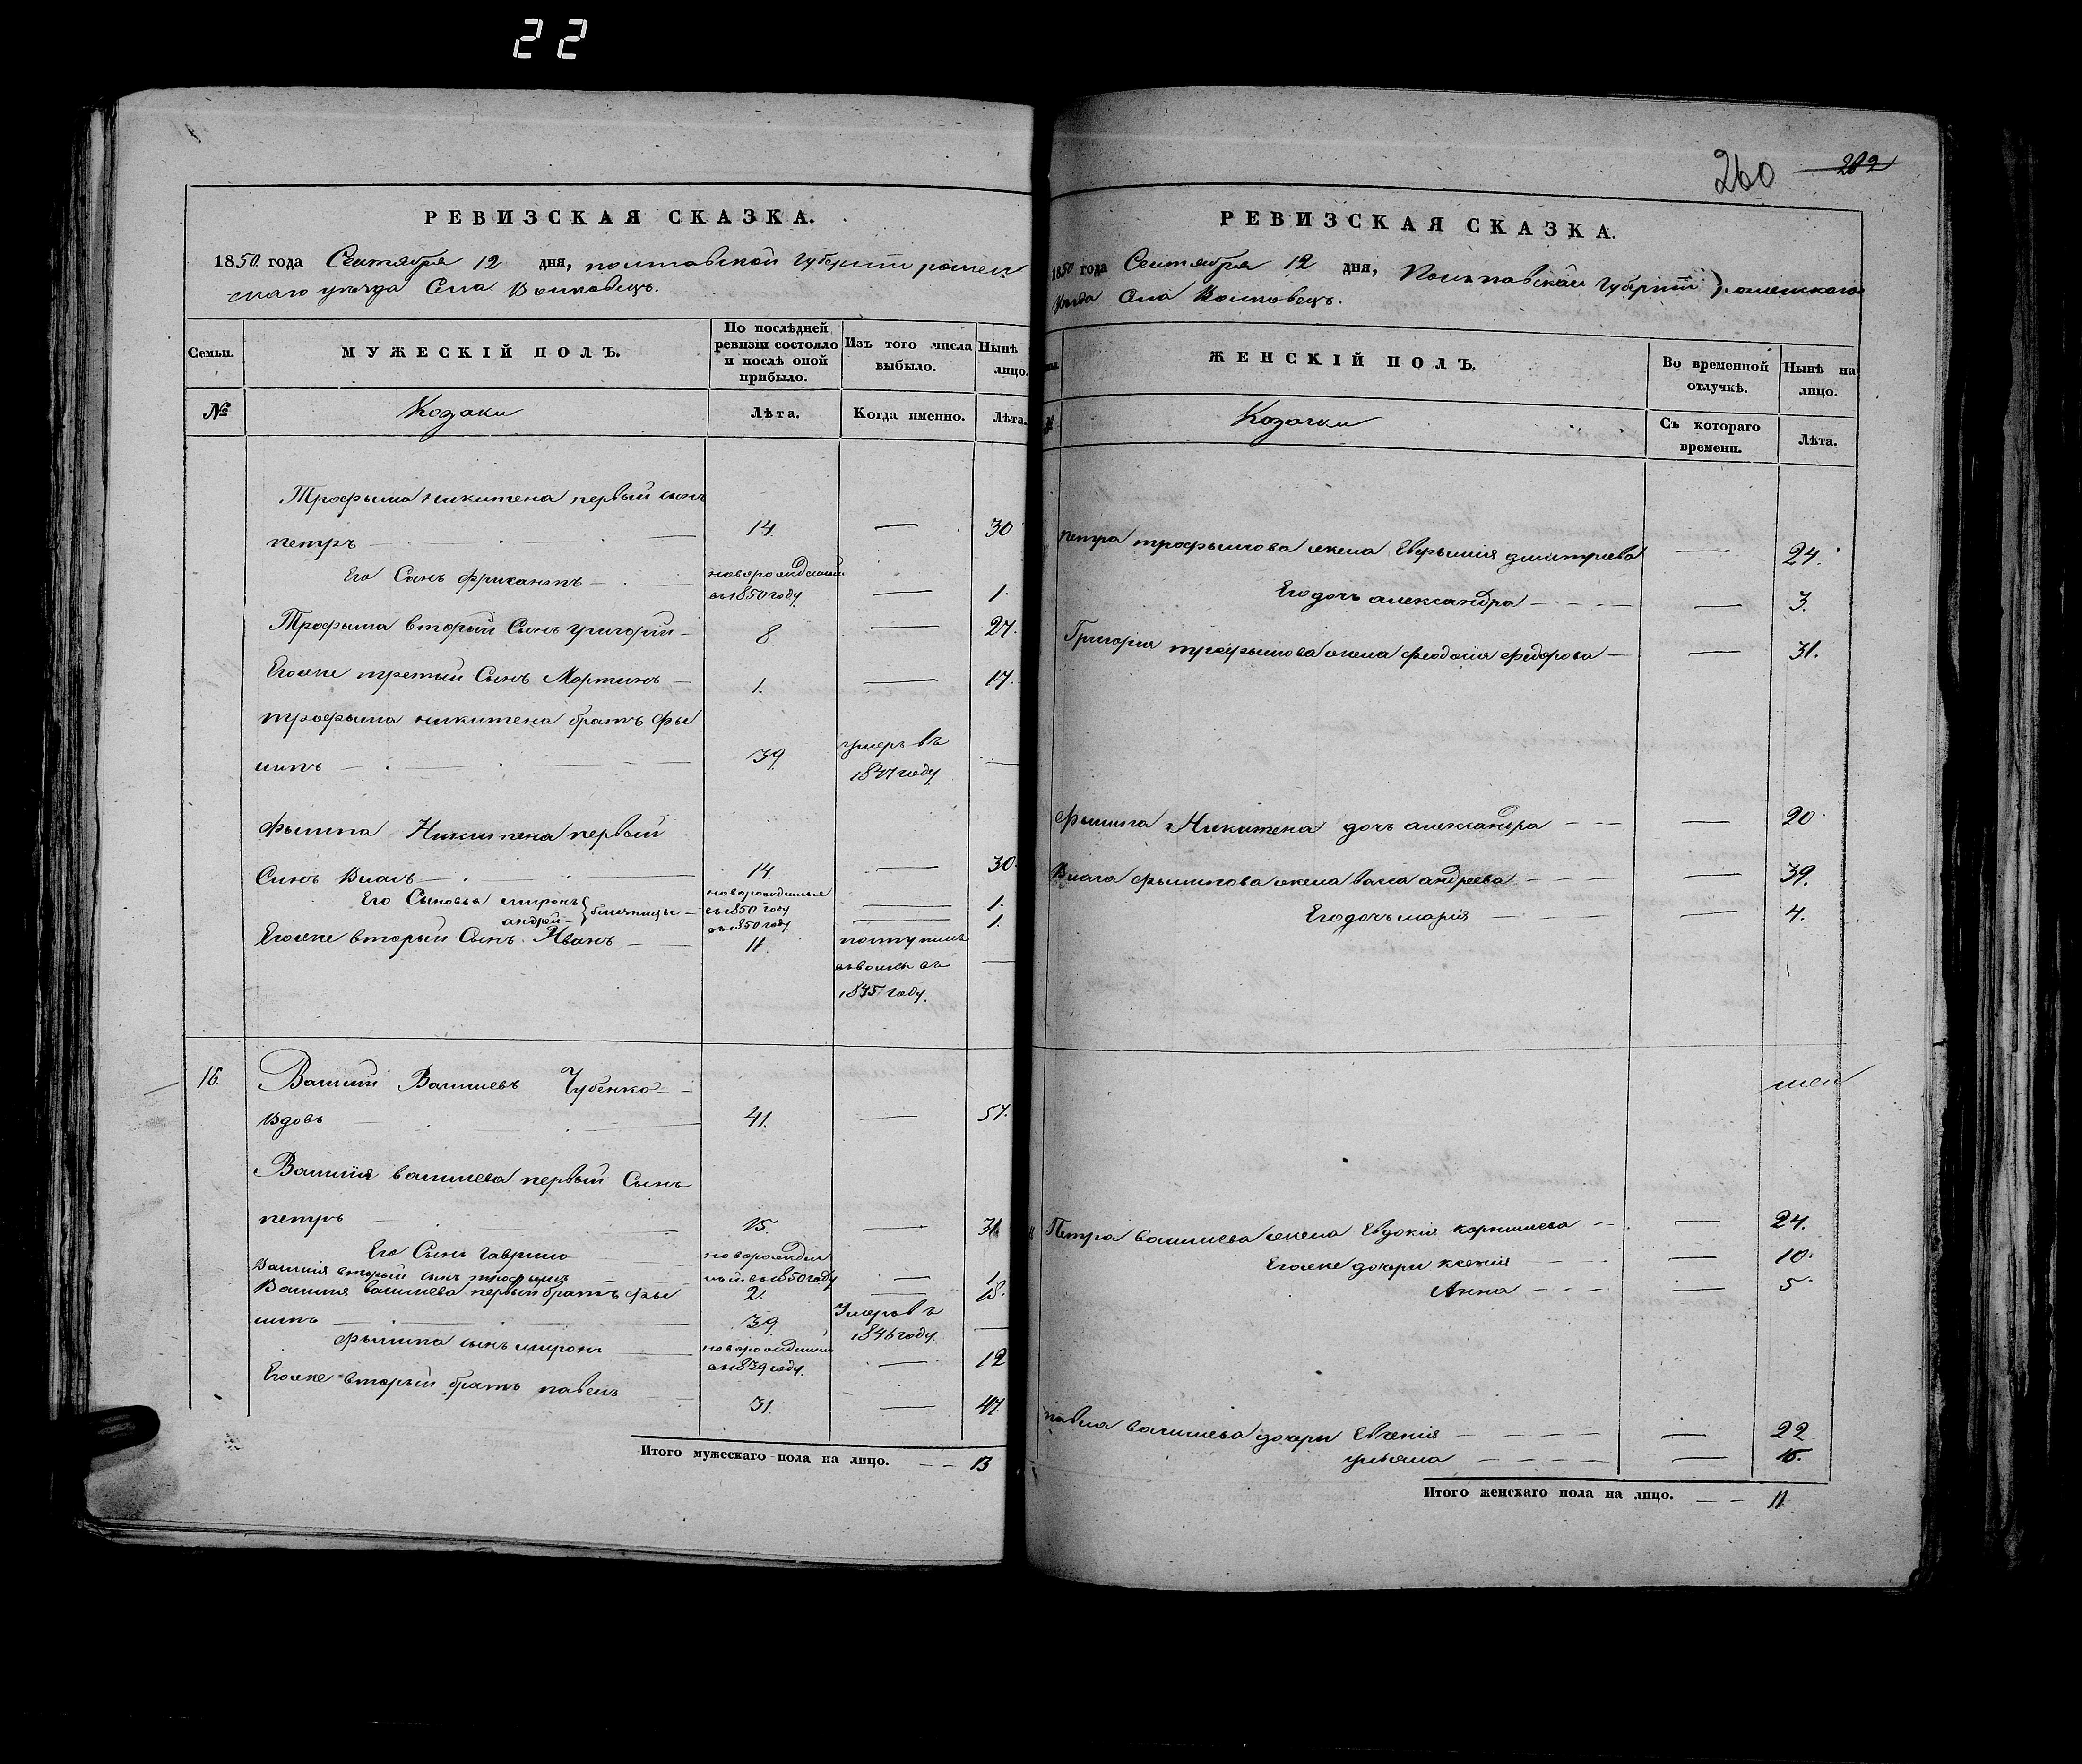 22
РЕВИЗСКАЯ СКАЗКА.
1850 года Сентября 12 дня, полтавской Губернїи ромен
скаго уѣзда Села Волковецъ.
Семьи.
МУЖЕСКІЙ ПОЛЪ.
По послѣдней ревизіи состояло и послѣ оной прибыло.
Изъ того числа выбыло.
Нынѣ лицо.
№
Козаки
Лѣта.
Когда именно.
Лѣта.
Трофыма никитена первый сынъ
петръ — 14. — 30
Его Сынъ — новорожденный
въ 1850 году — 1.
Трофыма вторый Сынъ григорій — 8 — 27.
Егоже третый Сынъ Мартынъ — 1. — 17.
трофыма никитена братъ фы
липъ — 39. умеръ въ
1847 году —
Фылипа Никитена первый
Сынъ Власъ — 14. — 30.
Его Сыновья миронъ близнецы — новорожденные въ 1850 году — 1.
андрей — въ 1850 году — 1.
Егоже вторый Сынъ Иванъ — 11. поступилъ
въ 1845 году. —
16. Василій Васильевъ Чубенко —
Вдовъ — 41. — 57.
Василія васильева первый Сынъ
петръ — 15. — 31.
Его Сынъ гаврило — новорожден
ный въ 1850 году — 1
Василія вторый сынъ трофымъ — 2. — 18.
Василія васильева первый братъ фы
липъ — 39. Умеръ въ
1846 году. —
фылипа сынъ миронъ — новорожденный
въ 1839 году. — 12
Егоже вторый братъ павелъ — 31. — 47.
Итого мужескаго пола на лицо. — — 13
260 202
РЕВИЗСКАЯ СКАЗКА.
1850 года Сентября 12 дня, Полтавской Губернїи роменскаго
Уѣзда Села Волковецъ.
ЖЕНСКІЙ ПОЛЪ.
Во временной отлучкѣ.
Нынѣ на лицо.
№
Козачки
Съ котораго времени.
Лѣта.
Петра трофымова жена Евфымія дмитріева — 24.
Его дочь александра — — 3.
Григорія трофымова жена феодосія федорова — — 31.
Фылипа Никитена дочь александра — — 20.
Власа фылипова жена васса андреева — — 39.
Его дочь марія — — 4.
Петра васильева жена Евдокія корнилиева — — 24.
Егоже дочери ксенія — — 10.
Анна — — 5.
павла васильева дочери Евгенія — — 22
ульяна — — 15.
Итого женскаго пола на лицо. — — 11